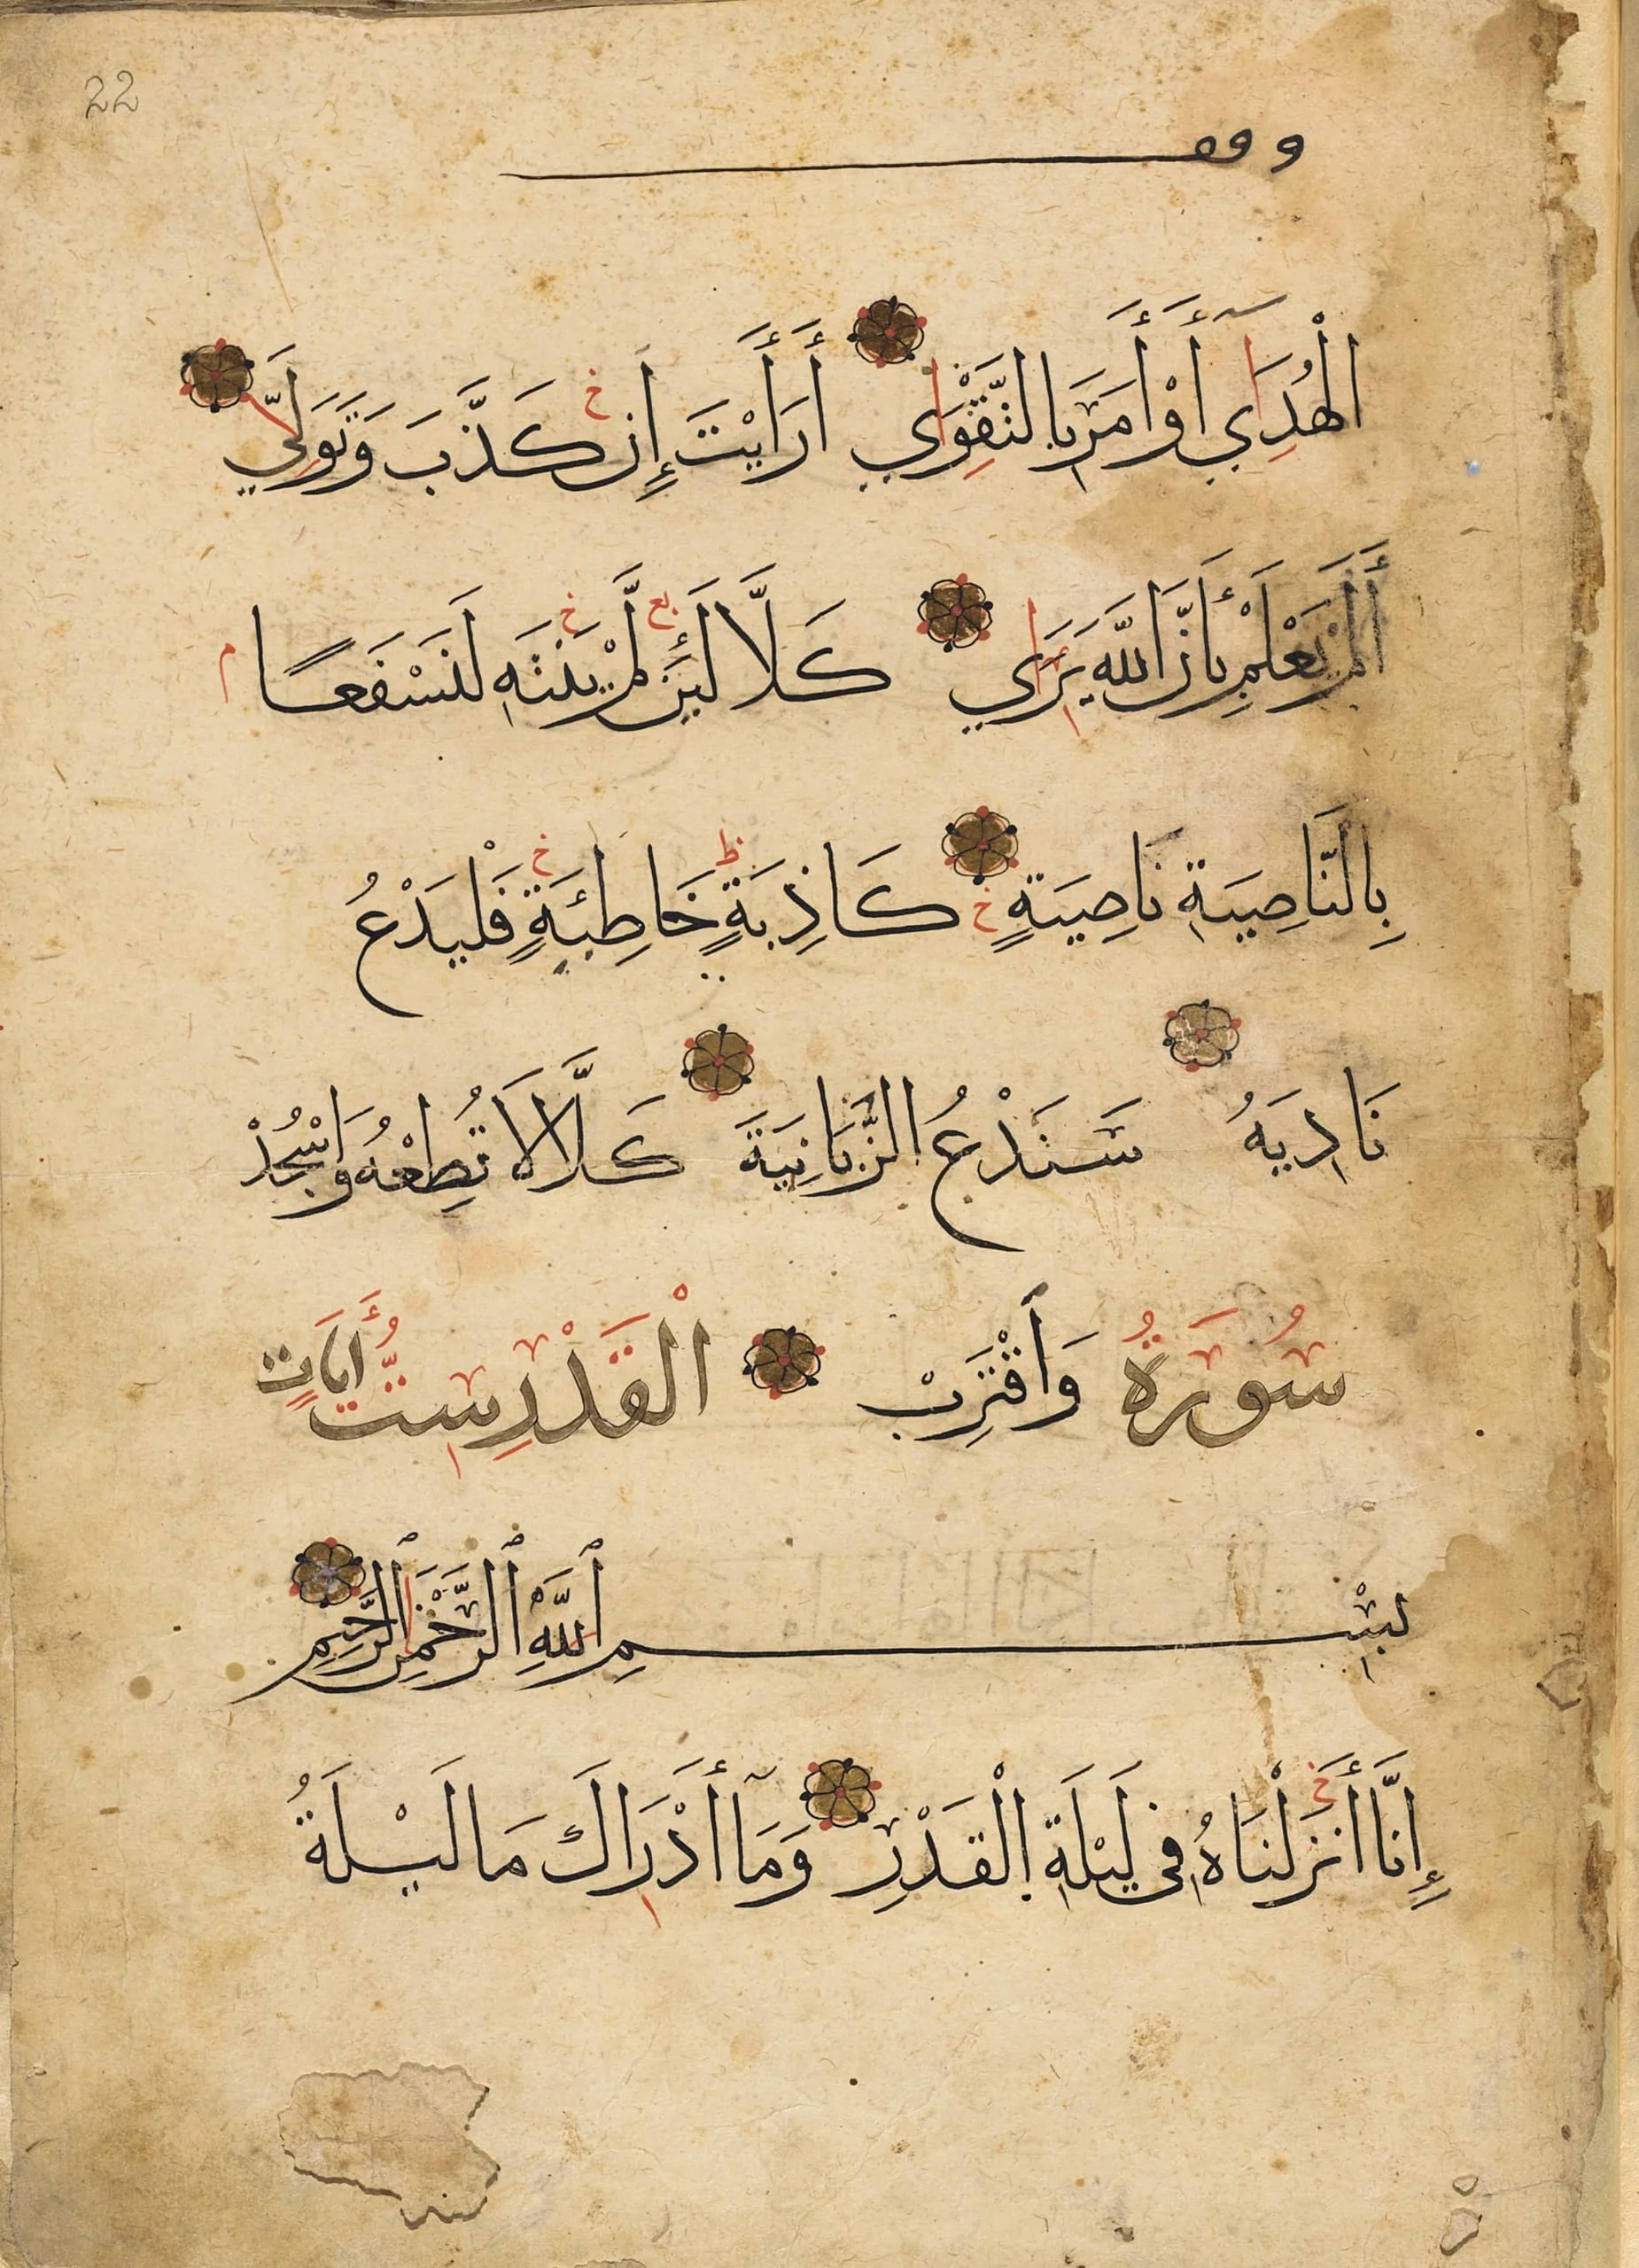 22
وقف
الْهُدَىٰ أَوْ أَمَرَ بِالتَّقْوَىٰ أَرَأَيْتَ إِن كَذَّبَ وَتَوَلَّىٰ
أَلَمْ يَعْلَمْ بِأَنَّ اللَّهَ يَرَىٰ كَلَّا لَئِن لَّمْ يَنتَهِ لَنَسْفَعًا
بِالنَّاصِيَةِ نَاصِيَةٍ كَاذِبَةٍ خَاطِئَةٍ فَلْيَدْعُ
نَادِيَهُ سَنَدْعُ الزَّبَانِيَةَ كَلَّا لَا تُطِعْهُ وَاسْجُدْ
وَاقْتَرِبْ سُورَةُ الْقَدْرِ سِتُّ أٰيَاتٍ
بِسْمِ اللَّهِ الرَّحْمٰنِ الرَّحِيمِ
إِنَّا أَنزَلْنَاهُ فِي لَيْلَةِ الْقَدْرِ وَمَا أَدْرَاكَ مَا لَيْلَةُ